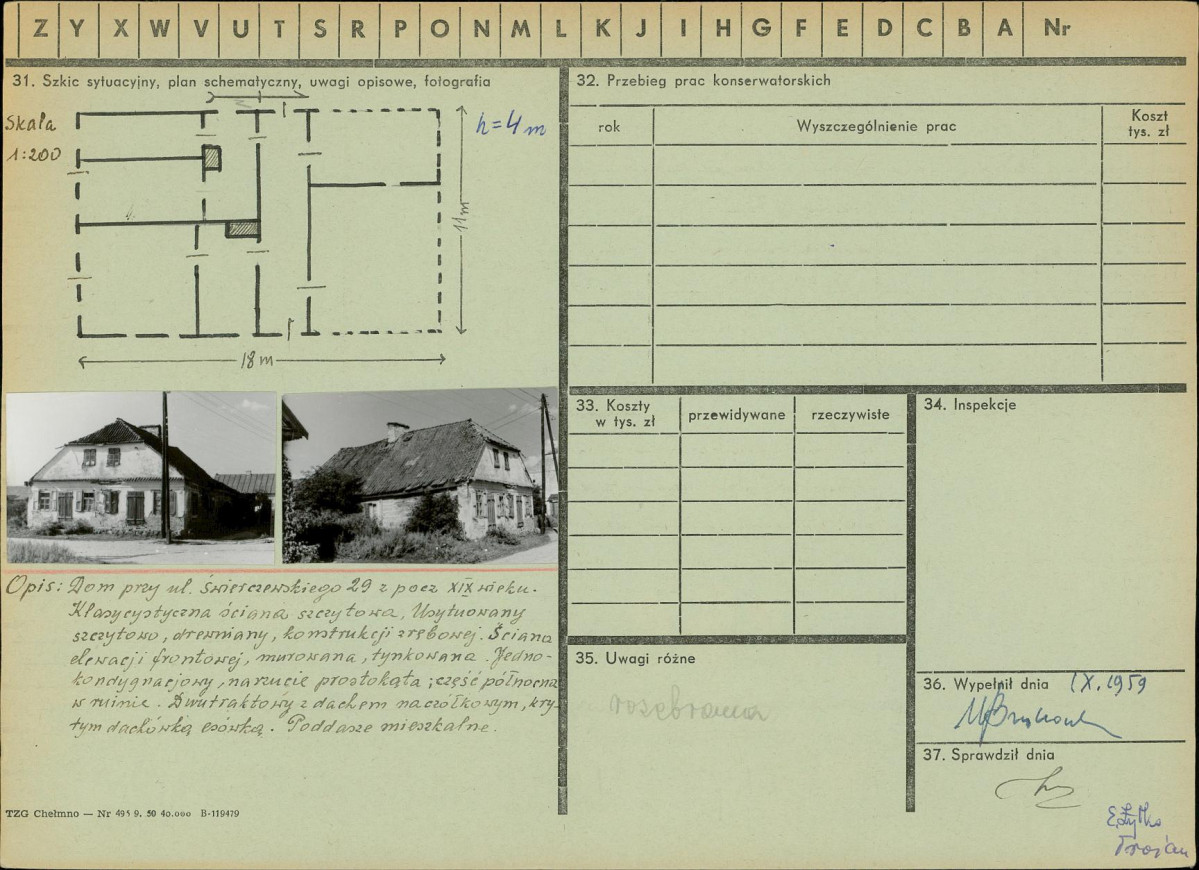 Z Y X W V U T S R P O N M L K J I H G F E D C B A Nr
31. Szkic sytuacyjny, plan schematyczny, uwagi opisowe, fotografia
Skala
1:200
h=4 m
11m
18 m
Opis: Dom przy ul. Świerczewskiego 29 z pocz XIX wieku.
Klasycystyczna ściana szczytowa, Usytuowany
szczytowo, drewniany, konstrukcji zrębowej. Ściana
elewacji frontowej, murowana, tynkowana. Jedno-
kondygnacjowy, na rzucie prostokąta; część północna
w ruinie. Dwutraktowy z dachem naczółkowym, kry-
tym dachówką esówką. Poddasze mieszkalne.
TZG Chełmno — Nr 495 9. 50 40.000 B-119479
32. Przebieg prac konserwatorskich
rok Wyszczególnienie prac Koszt
tys. zł
33. Koszty
w tys. zł
przewidywane rzeczywiste
34. Inspekcje
35. Uwagi różne
rozebrana
36. Wypełnił dnia IX.1959
37. Sprawdził dnia
Trojan